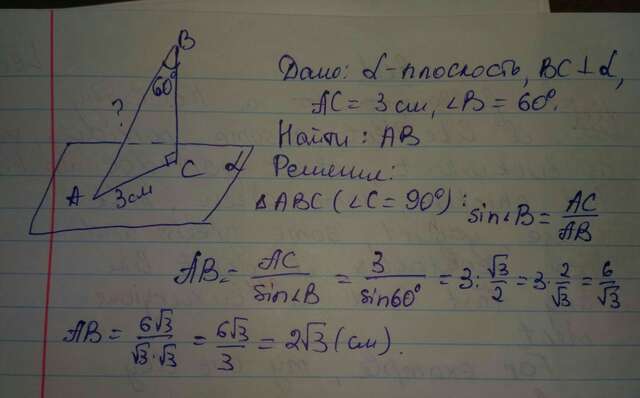 B
60°
?
A
3см
C
α
Дано: α-плоскость, BC⊥α,
AC = 3 см, ∠B = 60°.
Найти: AB
Решение:
△ABC (∠C = 90°): sin∠B = AC/AB
AB = AC/sin∠B = 3/sin60° = 3:√3/2 = 3·2/√3 = 6/√3
AB = 6√3/√3·√3 = 6√3/3 = 2√3 (см).